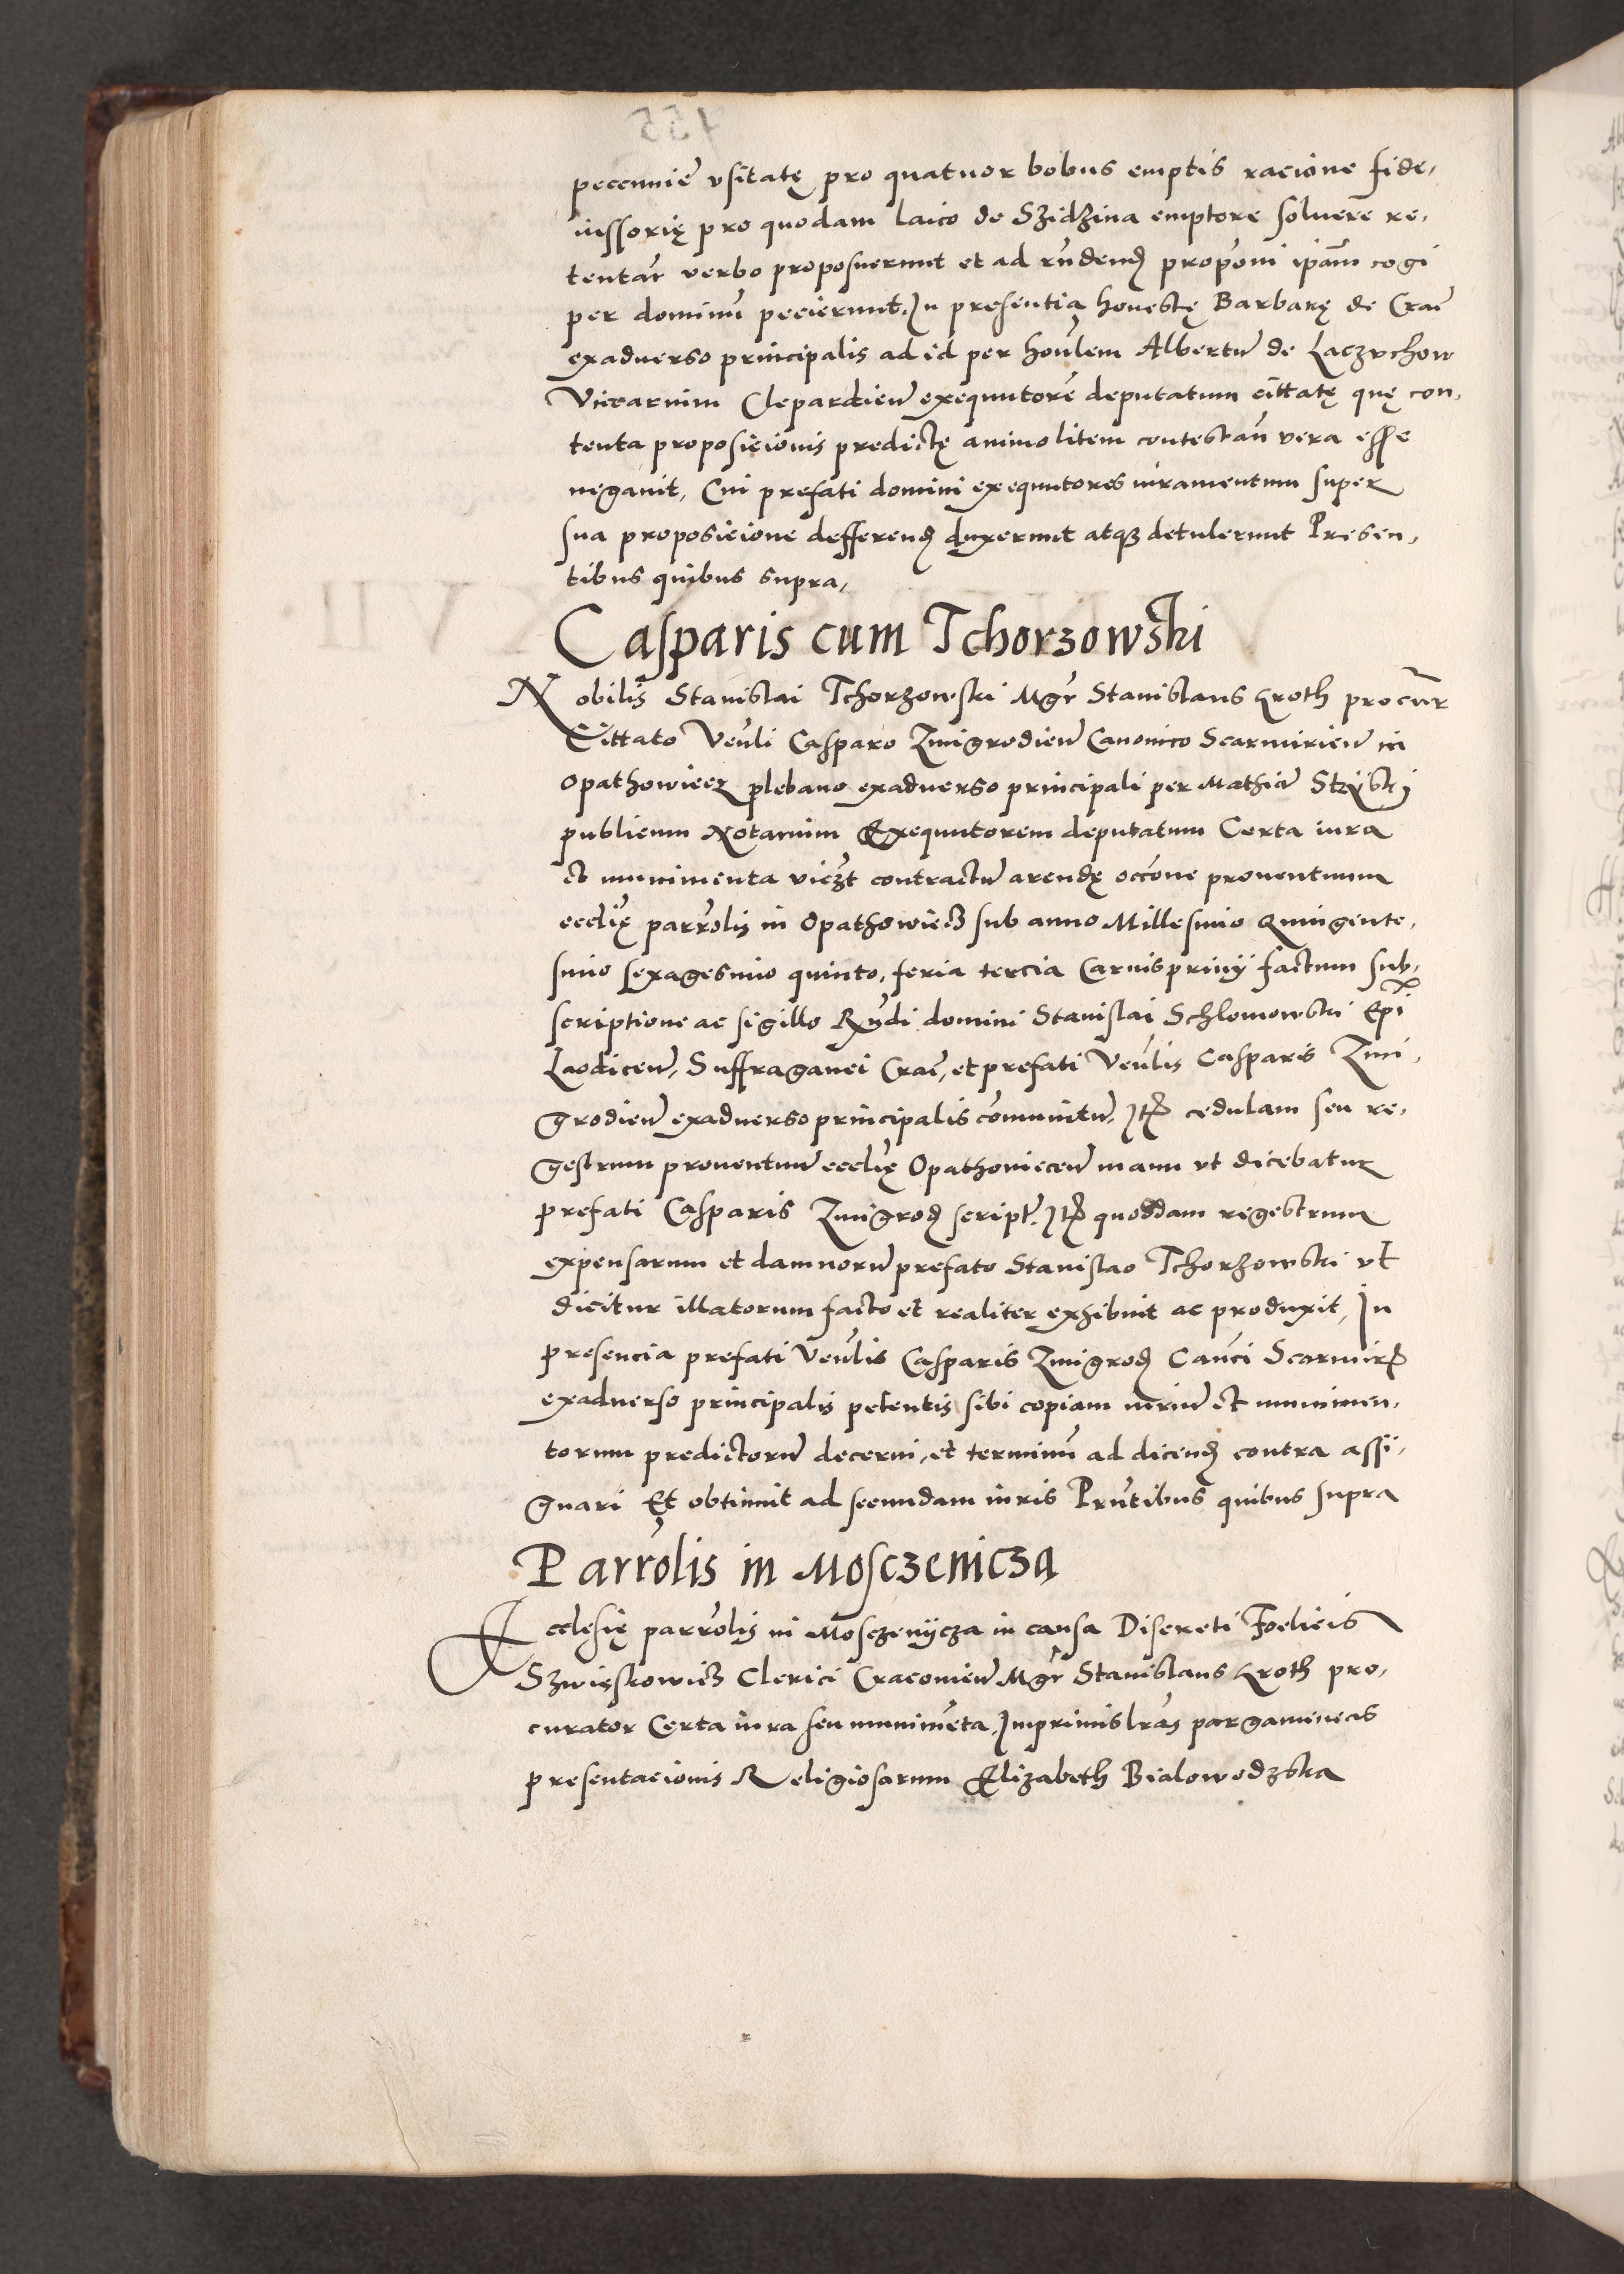 peccuniē vsitatę pro quatuor bobus emptis racione fide,
iussorię pro quodam laico de Szidzina emptore soluere re,
tentar̄ verbo proposuerunt et ad rn̄dend propōni ipām cogi
per dominū pecierunt. In presentia honestę Barbarę de Crac̄
exaduerso principalis ad id per honļem Albertū de Laczuchow
Vicarium Clepardien̄ exequutorē deputatum cittatę quę con,
tenta proposicionis predictę animo litem contestan̄ vera esse
negauit, Cui prefati domini exequutores iuramentum super
sua proposicione defferend duxerunt atq3 detulerunt Presen,
tibus quibus supra,
Casparis cum Tchorzowski
Nobilis Stanislai Tchorzowski Mgr̄ Stanislaus Kroth procur̄
Cittato Ven̄li Casparo Zmigrodien̄ Canonico Scarmirien̄ in
Opathowiecz plebano exaduerso principali per Mathiā Strziski
publicum Notarium Exequutorem deputatum Certa iura
et munimenta vicz̄t contractū arendę occōne prouentuum
ecclīę parrōlis in Opathowiecz sub anno Millesimo Quingente,
simo sexagesimo quinto, feria tercia Carnispriuy factum sub,
scriptione ac sigillo Rn̄di domini Stanislai Schlomowski Ep̄i
Laodicen̄, Suffraganei Crac̄, et prefati Ven̄lis Casparis Zmi,
grodien̄ exaduerso principalis cōmunitū. Itē cedulam seu re,
gestrum prouentuū ecclīę Opathouiecen̄ manu vt dicebatur
prefati Casparis Zmigrod script̄. Itē quoddam regestrum
expensarum et damnorū prefato Stanislao Tchorzowski vt
dicitur illatorum facto et realiter exhibuit ac produxit, In
presencia prefati Ven̄lis Casparis Zmigrod Can̄ci Scarmir̄
exaduerso principalis petentis sibi copiam iuriū et munimen,
torum predictorū decerni, et terminū ad dicend contra assi,
gnari Et obtinuit ad secundam iuris Prn̄tibus quibus supra
Parrōlis in Mosczenicza
Ecclesię parrōlis in Mosczenycza in causa Discreti Foelicis
Szwięskowicz Clerici Cracouien̄ Mgr̄ Stanislaus Kroth pro,
curator Certa iura seu munimēta, Inprimis lrās pargameneas
presentacionis Religiosarum Elizabeth Bialowodzska